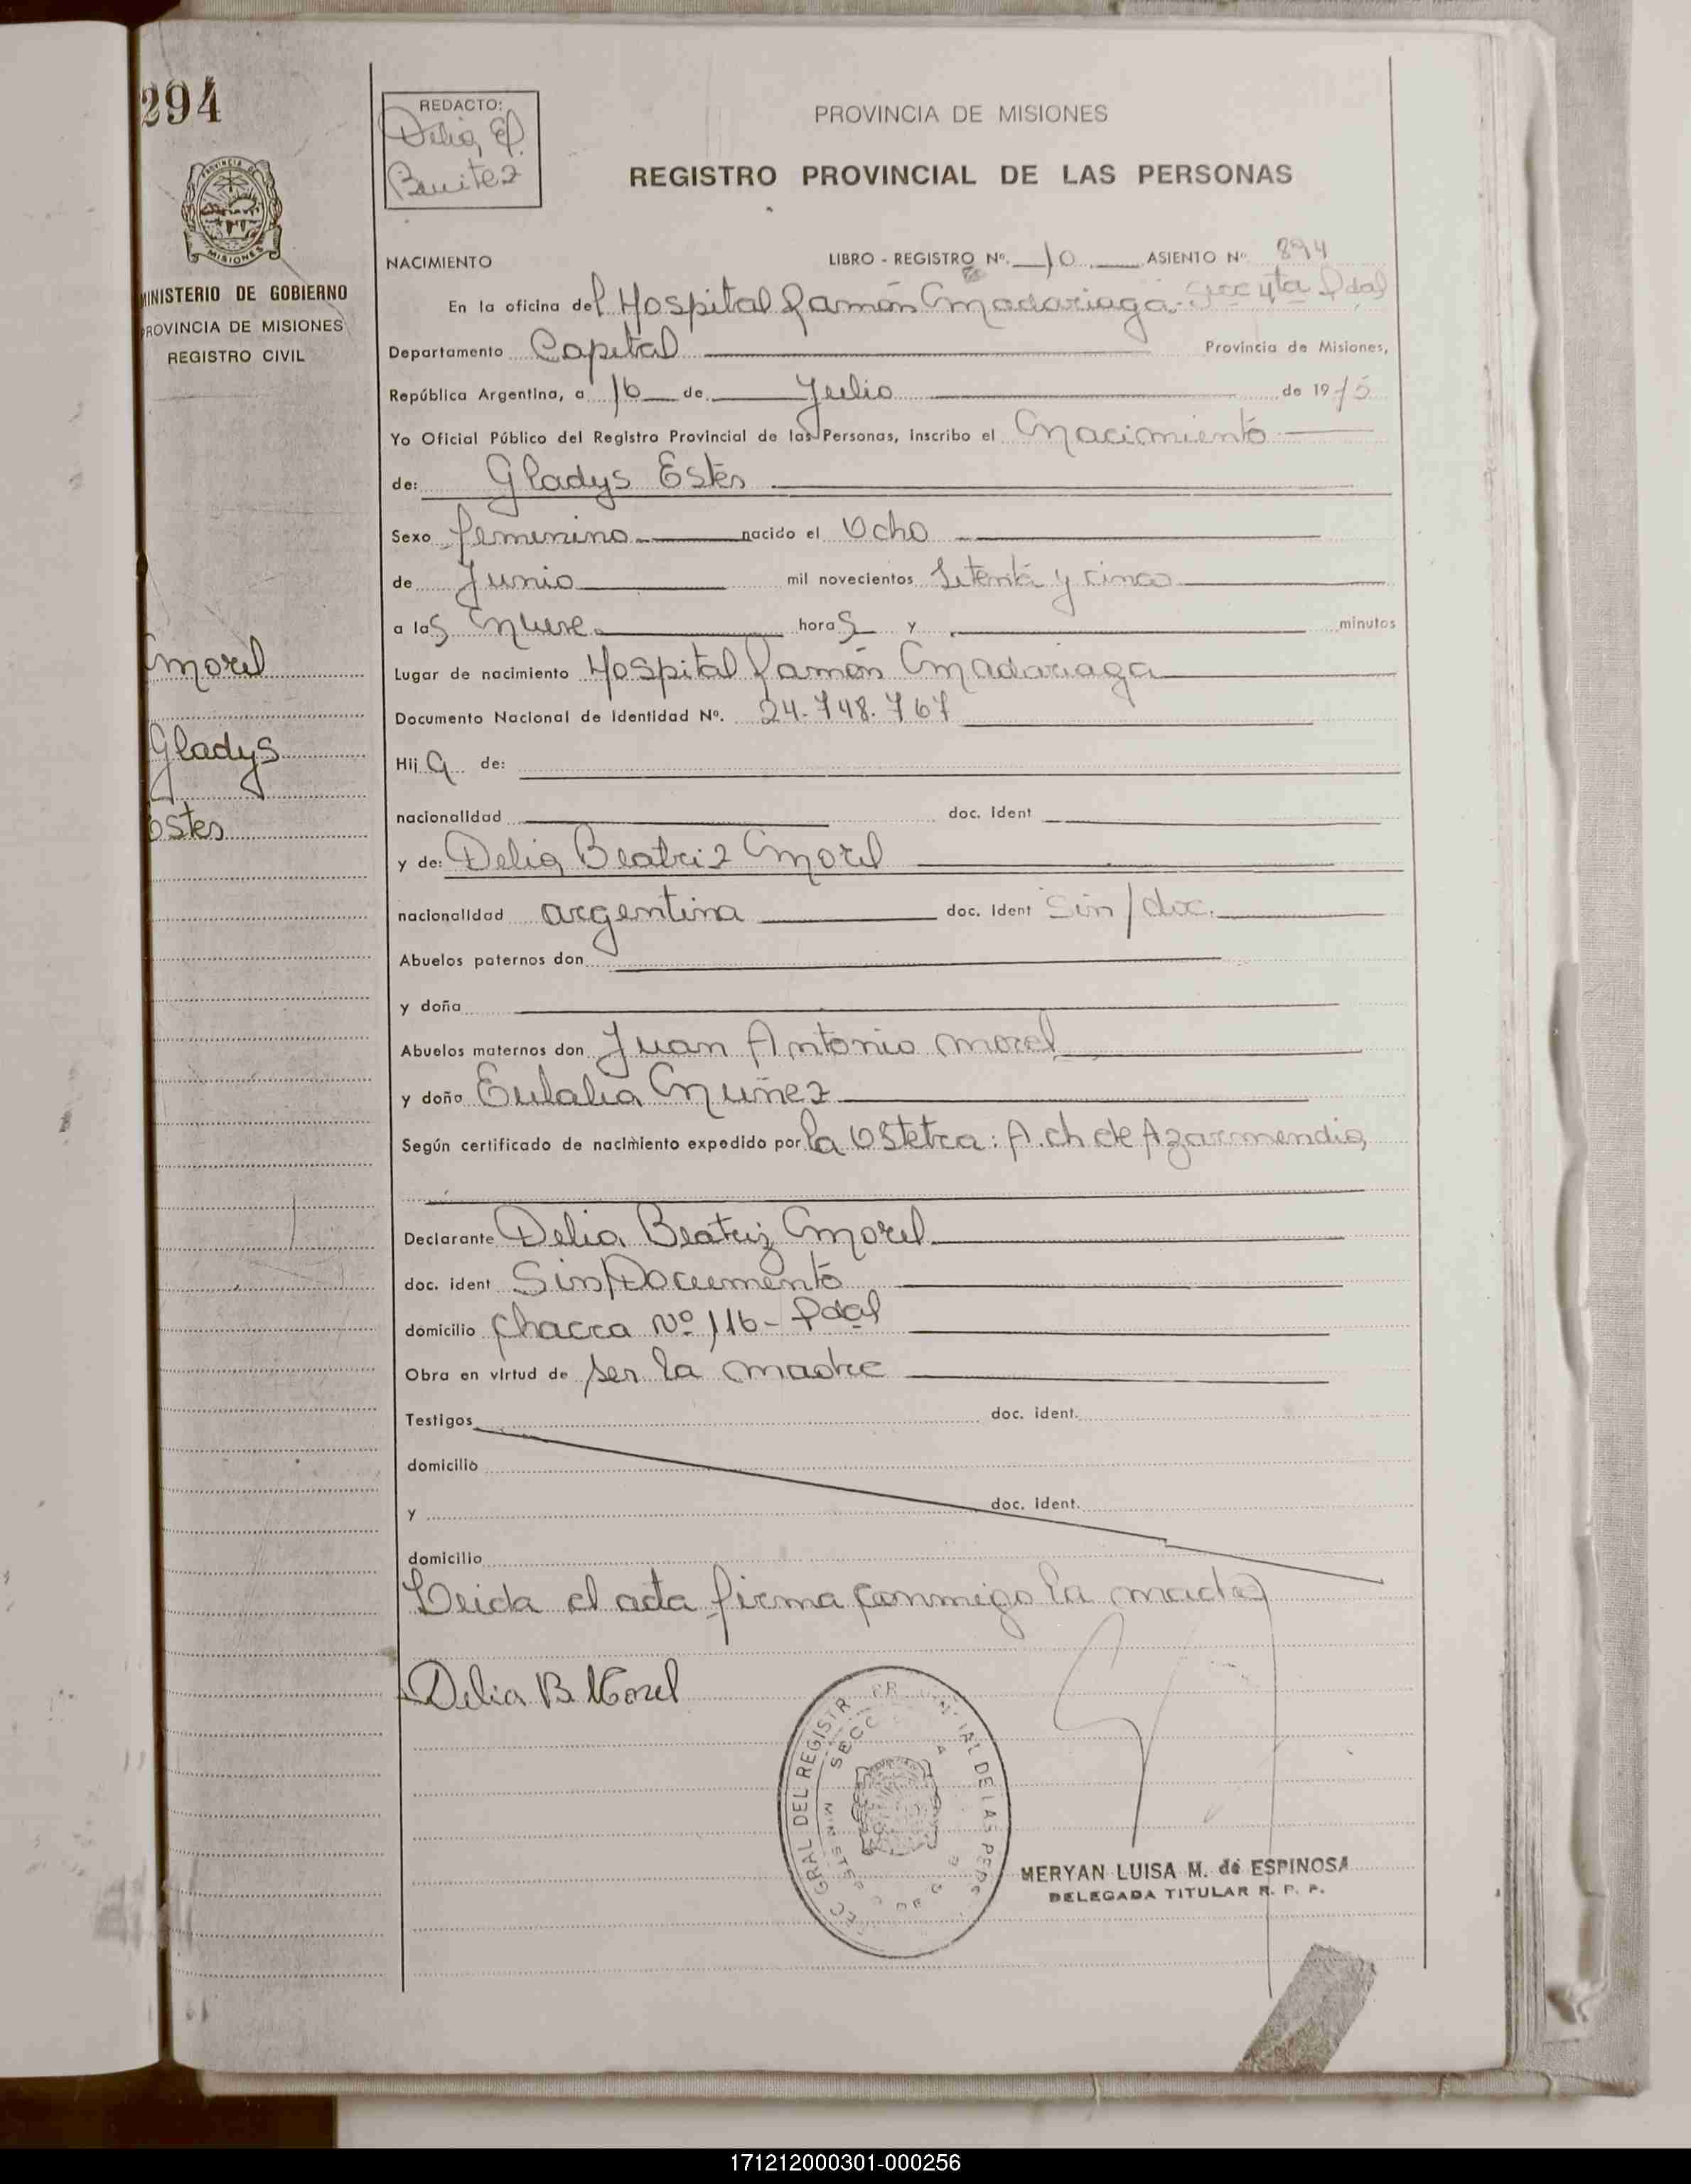 294
MINISTERIO DE GOBIERNO
PROVINCIA DE MISIONES
REGISTRO CIVIL
Morel
Gladys
Ester
REDACTO:
Delia E.
Benitez
PROVINCIA DE MISIONES
REGISTRO PROVINCIAL DE LAS PERSONAS
NACIMIENTO LIBRO - REGISTRO Nº. 10 ASIENTO Nº 894
En la oficina del Hospital Ramón Madariaga - Secc 4ta Pdas
Departamento Capital Provincia de Misiones,
República Argentina, a 16 de Julio de 1975
Yo Oficial Público del Registro Provincial de las Personas, inscribo el Nacimiento
de: Gladys Ester
Sexo femenino nacido el Ocho
de Junio mil novecientos Setenta y cinco
a las nueve horas y minutos
Lugar de nacimiento Hospital Ramón Madariaga
Documento Nacional de Identidad Nº. 24.748.767
Hija de:
nacionalidad doc. ident
y de: Delia Beatriz Morel
nacionalidad argentina doc. ident Sin/doc.
Abuelos paternos don
y doña
Abuelos maternos don Juan Antonio Morel
y doña Eulalia Nuñez
Según certificado de nacimiento expedido por la Obstetra: A. ch de Azarmendia
Declarante Delia Beatriz Morel
doc. ident Sin/Documento
domicilio Chacra Nº 116 - Pdas
Obra en virtud de ser la madre
Testigos doc. ident.
domicilio
y doc. ident.
domicilio
Leida el acta firma conmigo la madre
Delia B. Morel
MERYAN LUISA M. de ESPINOSA
DELEGADA TITULAR R. P. P.
171212000301-000256